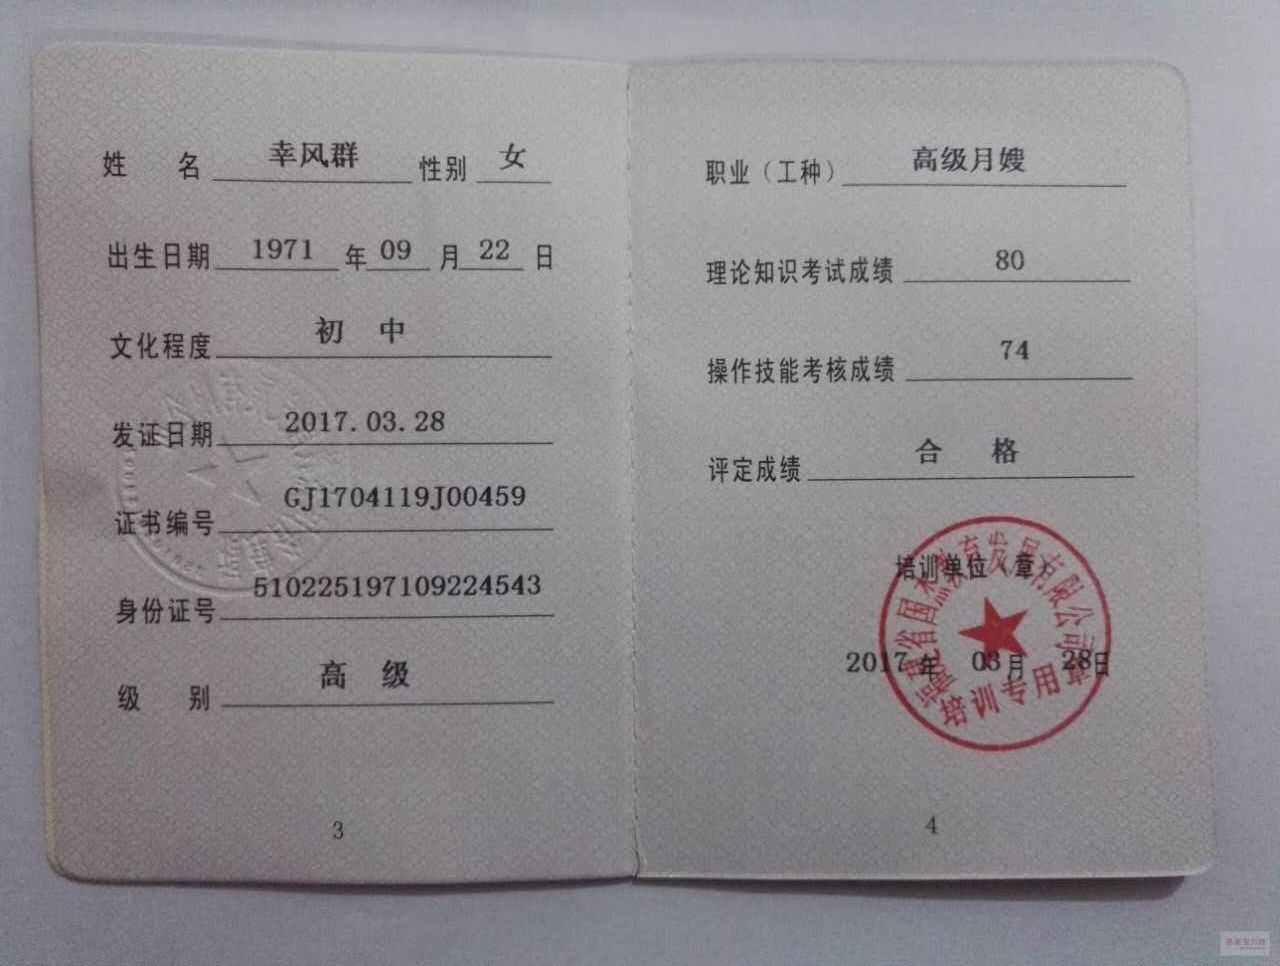 姓 名 幸风群 性别 女
出生日期 1971 年 09 月 22 日
文化程度 初 中
发证日期 2017.03.28
证书编号 GJ1704119J00459
身份证号 510225197109224543
级 别 高 级
3
职业（工种） 高级月嫂
理论知识考试成绩 80
操作技能考核成绩 74
评定成绩 合 格
培训单位（章）
2017 年 03 月 28 日
培训专用章
4